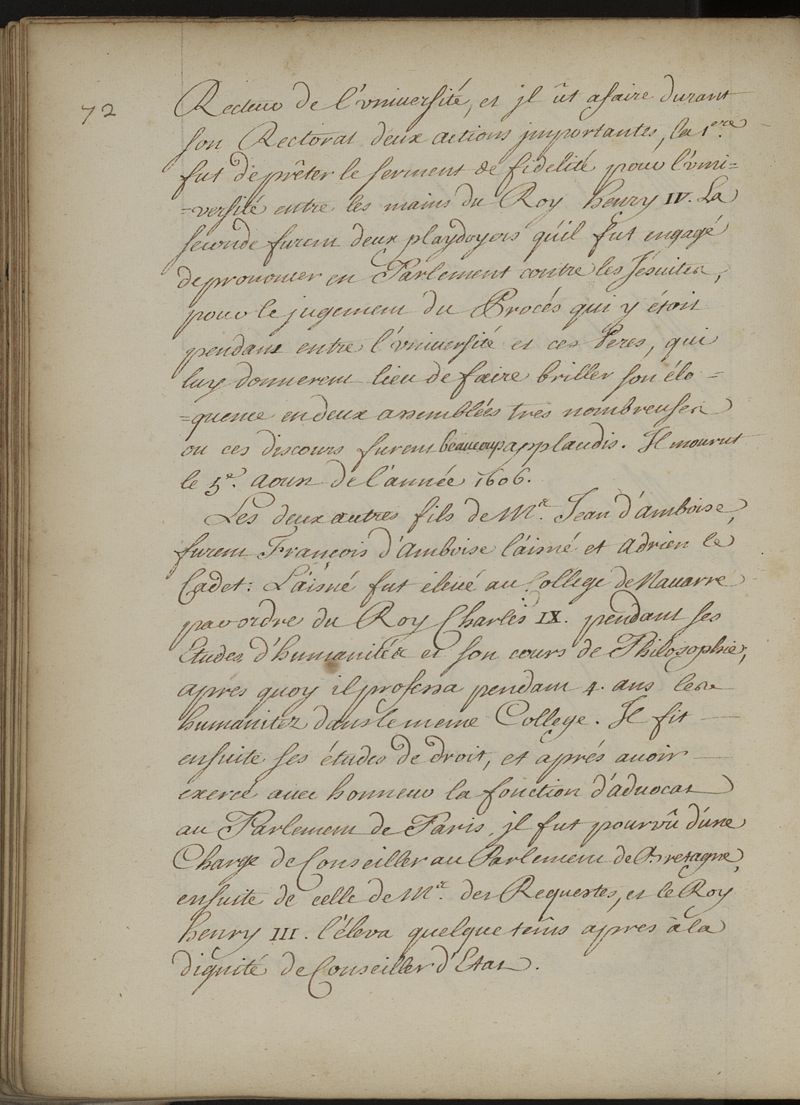 72
Recteur de l'vniuersité, et jl ût afaire durant
son Rectorat deux actions jmportantes, la 1.ere
fut deprêter le serment de fidelité pour l'vni=
=versité entre les mains du Roy henry IV. La
séconde furent deux playdoyers qu'il fut engagé
deprononcer en Parlement contre les Jésuites,
pour le jugement du Procés qui y étoit
pendant entre l'vniuersité et ces Peres, qui
luy donnerent lieu de faire briller son élo=
=quence en deux assemblées tres nombreuses
ou ces discours furent beaucoup applaudis. Il mourut
le 5.e aoust de l'année 1606.
Les deux autres fils de Mr. Jean d'amboise,
furent François d'amboise l'aisné et adrien le
Cadet: L'aisné fut éleué au College de Nauarre
par ordre du Roy Charles IX. pendant ses
Etudes d'humanités et son cours de Philosophie,
apres quoy il professa pendant 4. ans les
humanitez dans le meme College. Il fit
ensuite ses études de droit, et aprés auoir
exercé auec honneur la fonction d'aduocat
au Parlement de Paris, jl fut pourvû d'une
Charge de Conseiller au Parlement de Bretagne,
ensuite de celle de Mr. des Requestes, et le Roy
henry III. l'éleva quelque tems apres à la
dignité de Conseiller d'Etat.